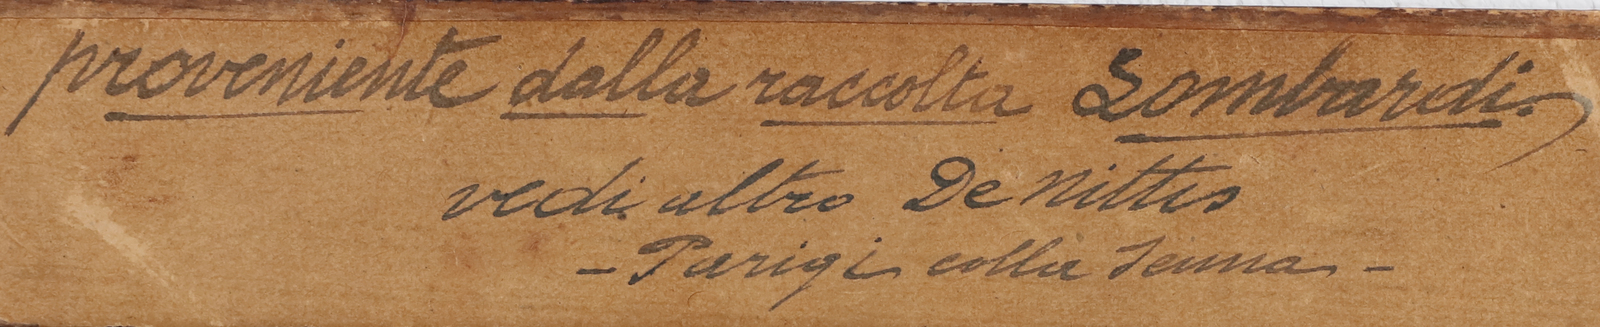 proveniente dalla raccolta Lombardi.
vedi altro De Nittis
- Parigi colla Senna -